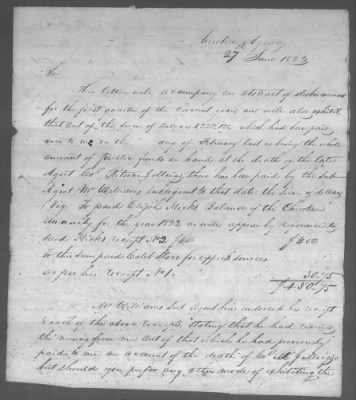 Cherokee Agency
27th June 1823
Sir
This letter will accompany an abstract of disbursements
for the first quarter of the current year, and will also exhibit
that out of the sum of dollars which had been paid
over to me on the day of February last as being the whole
amount of Public funds in hand at the death of the late
Agent there has been paid by the sub
Agent Mr Williams subsequent to that date the sum of dollars
Viz To paid Elijah Hicks Balance of the Cherokee
annuity for the year 1822 as will appear by reference to
said Hicks receipt No 2 $400
To this sum paid Caleb Starr for services
as per his receipt No 1. 30.75
$430.75
Mr Williams Sub Agent has indorsed his receipt
each of the above receipts, stating that he had received
the money from me out of that which he had previously
paid to me on account of the death of
but should you prefer any other mode of exhibiting the